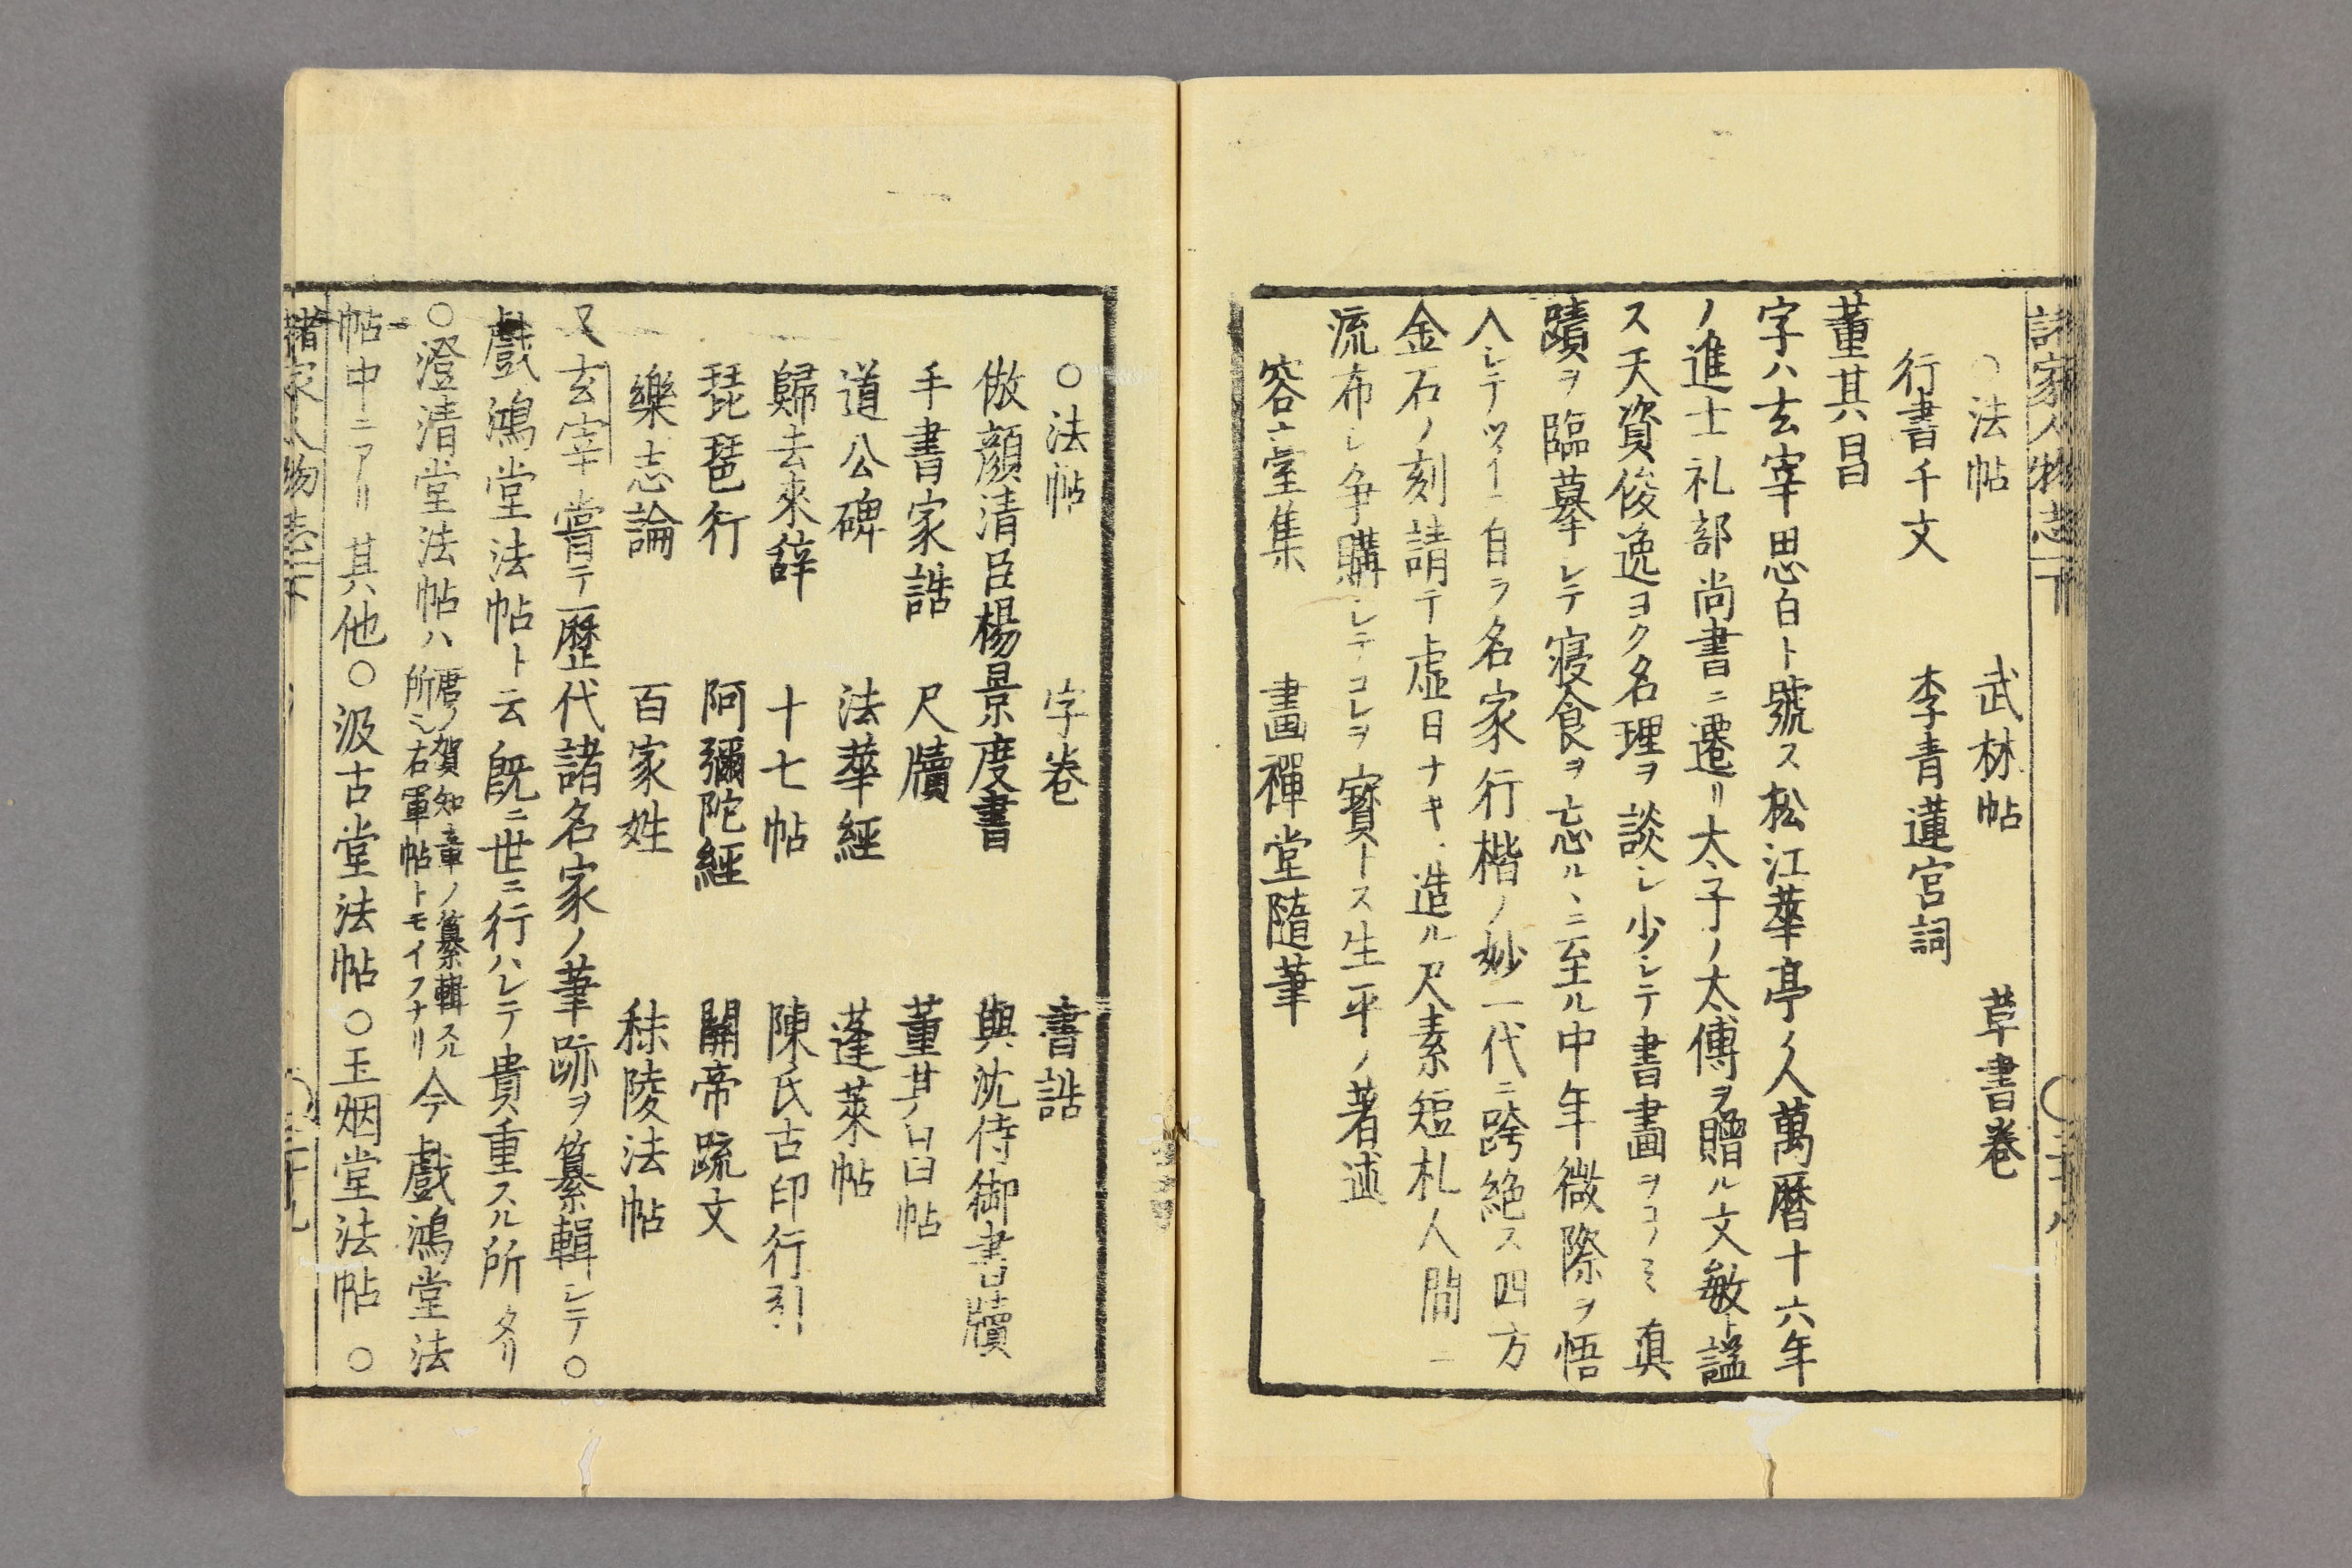 諸家人物志下
○法帖　武林帖　草書巻
行書千文　李青蓮宮詞
董其昌
字ハ玄宰思白ト號ス松江華亭ノ人萬暦十六年
ノ進士礼部尚書ニ遷リ太子ノ太傅ヲ贈ル文敏ト謚
ス天資俊逸ヨク名理ヲ談シ少シテ書畫ヲコノミ真
蹟ヲ臨摹シテ寝食ヲ忘ルヽニ至ル中年微際ヲ悟
入シテツイニ自ラ名家行楷ノ妙一代ニ跨絶ス四方
金石ノ刻請テ虚日ナキ造ル尺素短札人間ニ
流布シ争購シテコレヲ寳トス生平ノ著述
容臺集　畫禪堂隨筆
○法帖　字巻　書誥
倣顔清臣楊景度書　與沈侍御書牘
手書家誥　尺牘　董其昌帖
道公碑　法華經　蓬萊帖
歸去來辞　十七帖　陳氏古印行引
琵琶行　阿彌陀經　關帝疏文
樂志論　百家姓　秣陵法帖
又玄宰嘗テ歴代諸名家ノ筆跡ヲ纂輯シテ○
戲鴻堂法帖ト云既ニ世ニ行ハレテ貴重スル所タリ
○澄清堂法帖ハ唐ノ賀知章ノ纂輯スル所ニシ右軍帖トモイフナリ今戲鴻堂法
帖中ニアリ其他○汲古堂法帖○玉烟堂法帖○
諸家人物志下